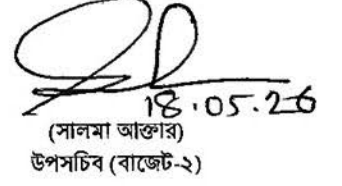 18.05.26
(সালমা আক্তার)
উপসচিব (বাজেট-২)